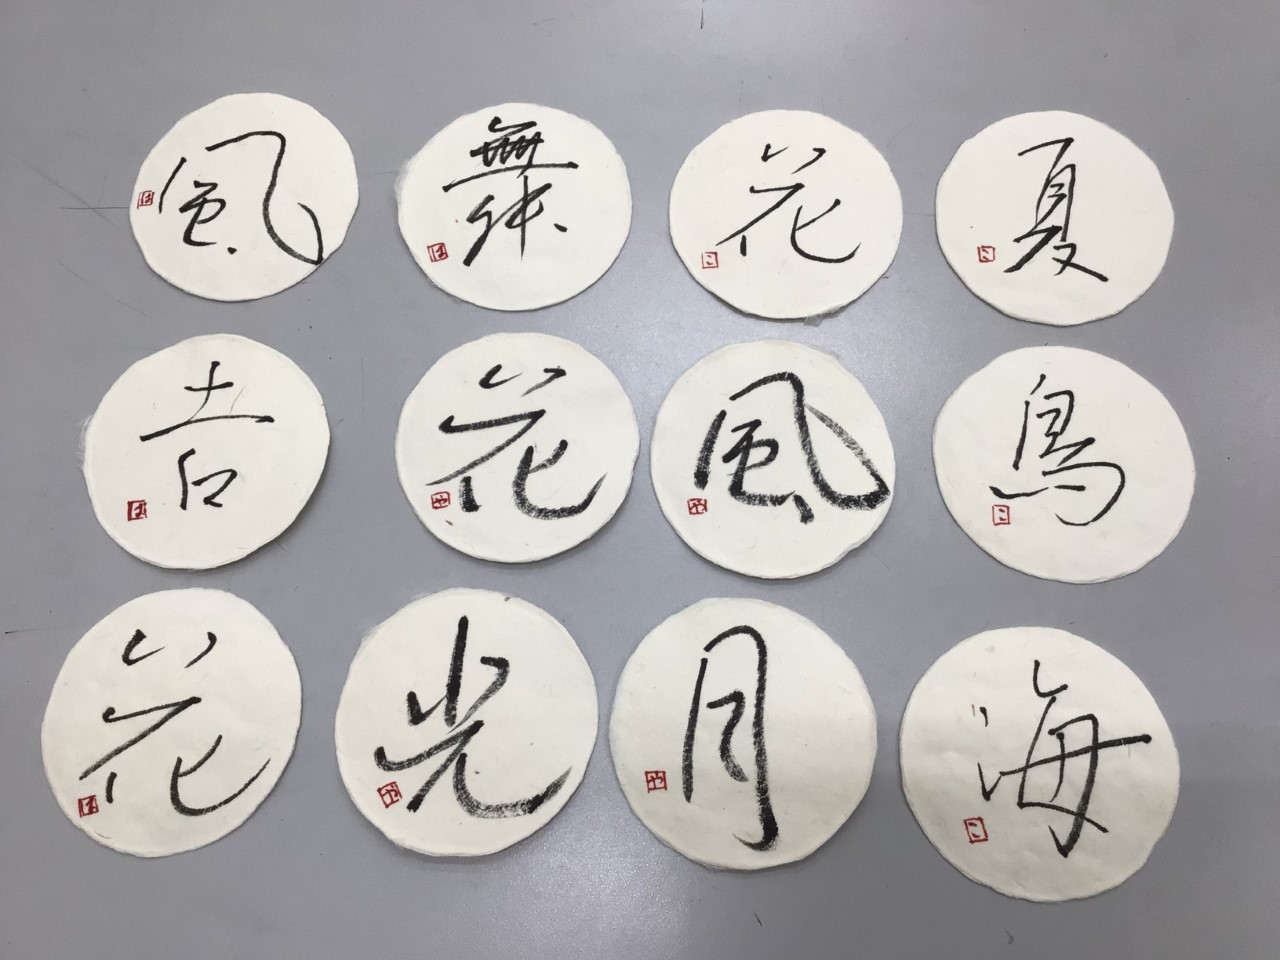 風 舞 花 夏
吉 花 風 鳥
花 光 月 海